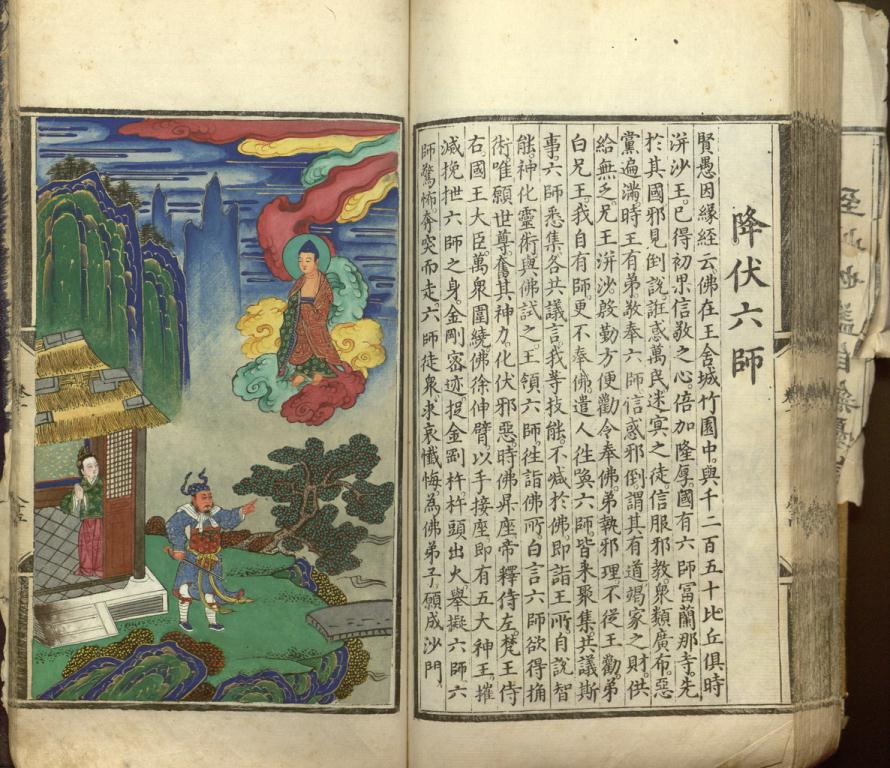 降伏六師
賢愚因緣經云佛在王舍城竹園中與千二百五十比丘俱時
洴沙王已得初果信敬之心倍加隆厚國有六師富蘭那等先
於其國邪見倒說誑惑萬民迷冥之徒信服邪教衆類廣布惡
黨遍滿時王有弟敬奉六師信惑邪倒謂其有道竭家之財供
給無乏兄王洴沙殷勤方便勸令奉佛弟執邪理不從王勸弟
白兄王我自有師更不奉佛遣人往喚六師皆來聚集共議斯
事六師悉集各共議言我等技能不減於佛即詣王所自說智
能神化靈術與佛試之王領六師往詣佛所白言六師欲得捔
術唯願世尊奮其神力化伏邪惡時佛昇座帝釋侍左梵王侍
右國王大臣萬衆圍繞佛徐伸臂以手接座即有五大神王摧
滅挽拽六師之身金剛密迹捉金剛杵杵頭出火舉擬六師六
師驚怖奔突而走六師徒衆求哀懺悔爲佛弟子願成沙門